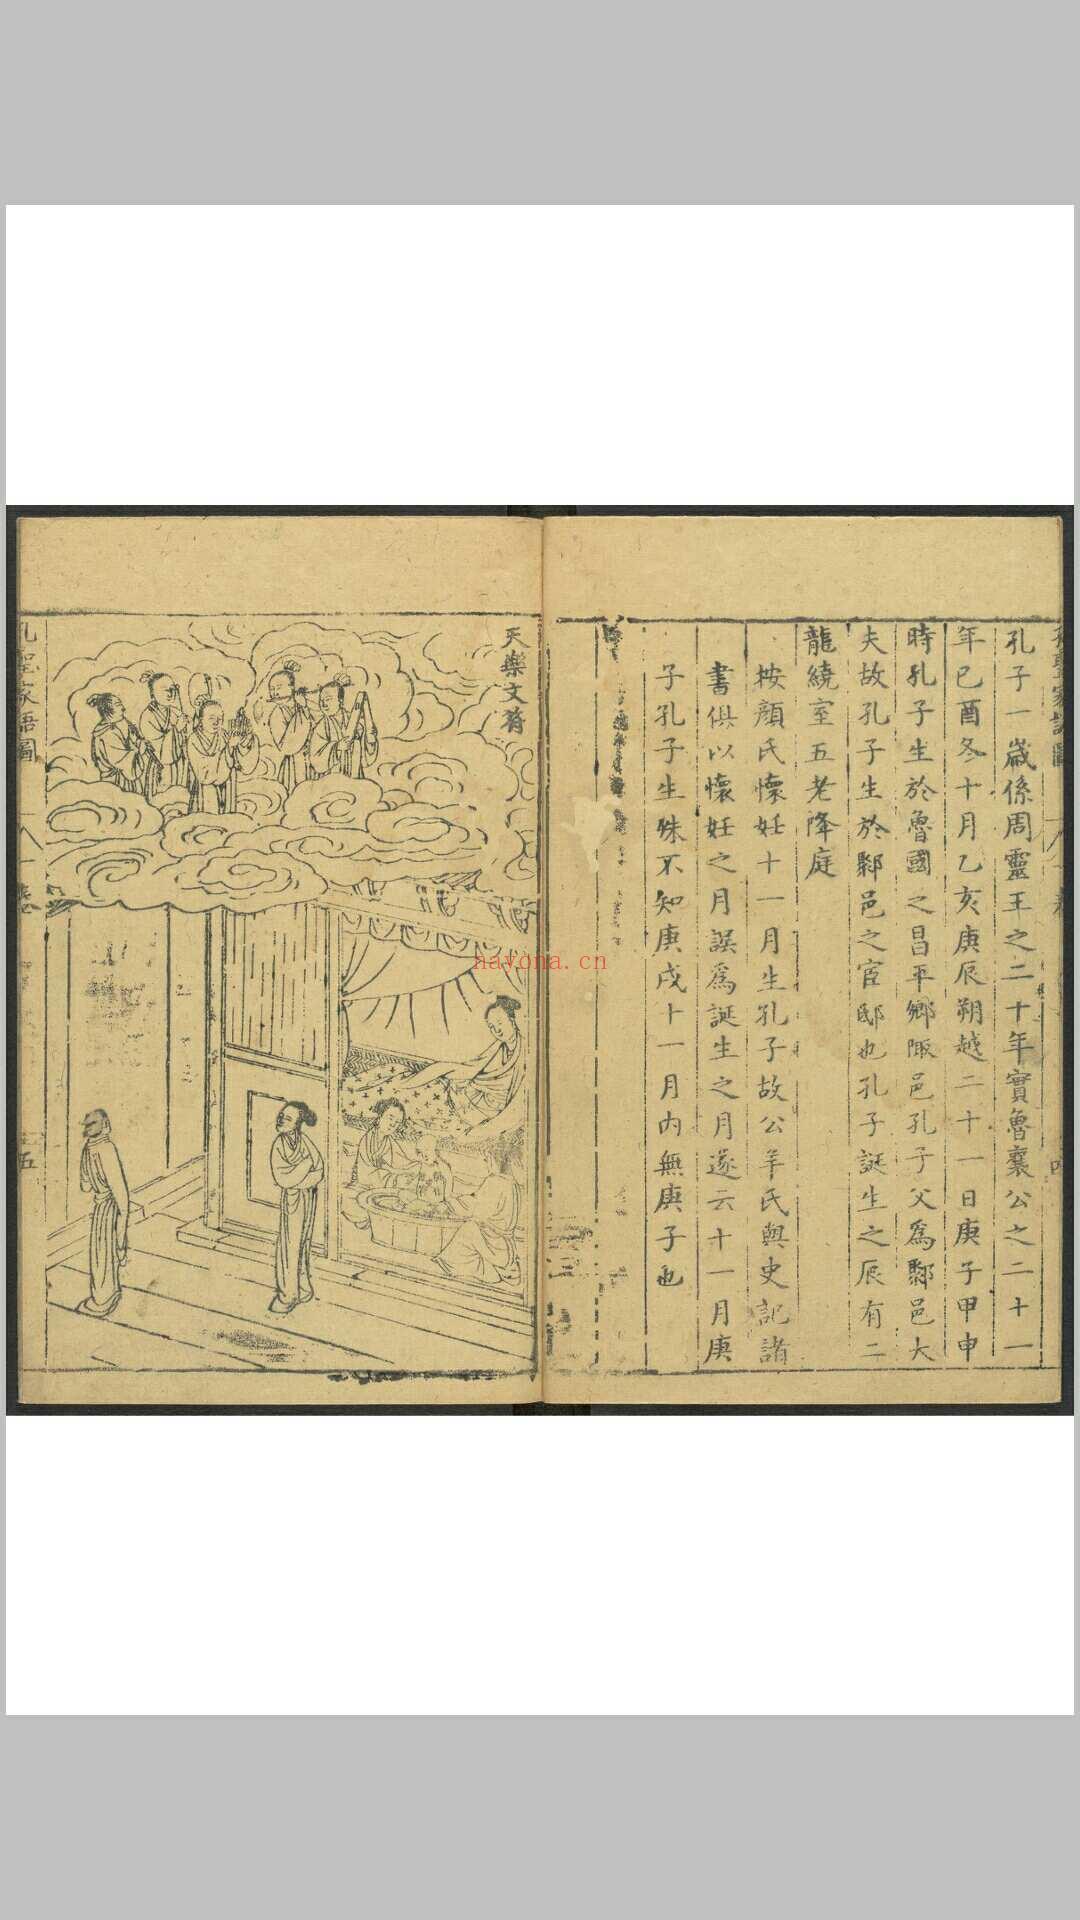 孔子一歲係周靈王之二十年實魯襄公之二十一
年己酉冬十月乙亥庚辰朔越二十一日庚子甲申
時孔子生於魯國之昌平鄉陬邑孔子父爲鄹邑大
夫故孔子生於鄹邑之宦邸也孔子誕生之辰有二
龍繞室五老降庭
按顏氏懷妊十一月生孔子故公羊氏與史記諸
書俱以懷妊之月誤爲誕生之月遂云十一月庚
子孔子生殊不知庚戌十一月內無庚子也
天樂文符
孔聖家語圖
五
nayona.cn